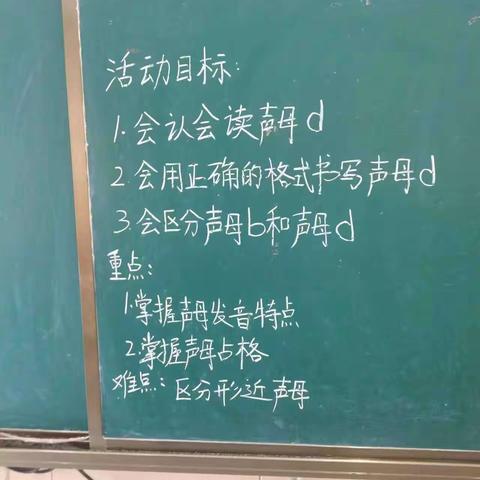 活动目标:
1.会认会读声母d
2.会用正确的格式书写声母d
3.会区分声母b和声母d
重点:
1.掌握声母发音特点
2.掌握声母占格
难点:区分形近声母